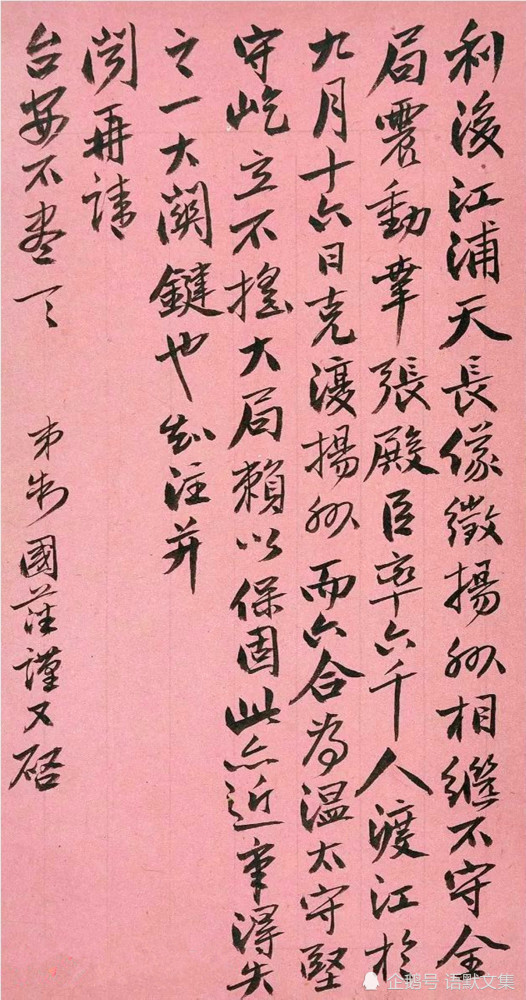 利後江浦天長儀徵揚州相繼不守全
局震動幸張殿臣率六千人渡江於
九月十六日克復揚州而六合為溫太守堅
守屹立不搖大局賴以保固此亦近事得失
之一大關鍵也知注并
聞再請
台安不盡一一
弟制國荃謹又啟
企鹅号 语默文集